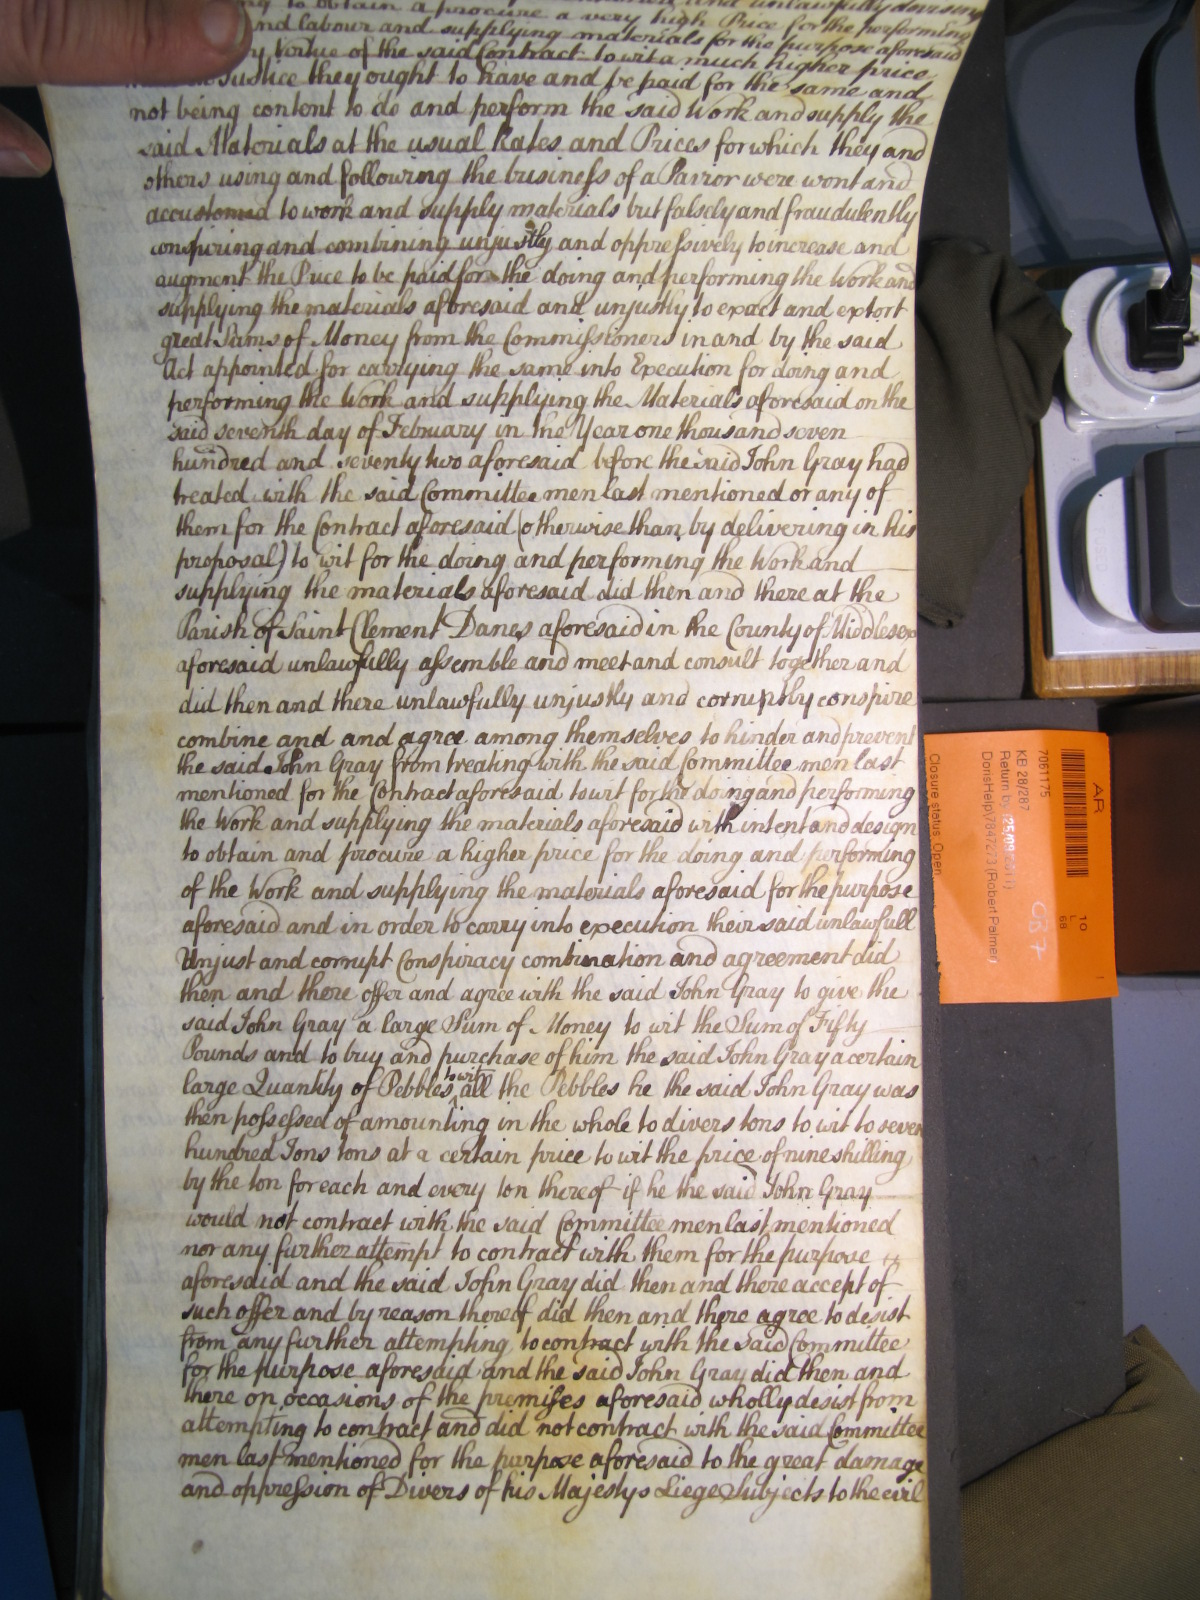 to obtain a procure a very high Price for the performing
and labour and supplying materials for the purpose aforesaid
by Virtue of the said Contract to wit a much higher price
Justice they ought to have and be paid for the same and
not being content to do and perform the said Work and supply the
said Materials at the usual Rates and Prices for which they and
others using and following the business of a Pavior were wont and
accustomed to work and supply materials but falsely and fraudulently
conspiring and combining unjustly and oppressively to increase and
augment the Price to be paid for the doing and performing the Work and
supplying the materials aforesaid and unjustly to exact and extort
great Sums of Money from the Commissioners in and by the said
Act appointed for carrying the same into Execution for doing and
performing the Work and supplying the Materials aforesaid on the
said seventh day of February in the Year one thousand seven
hundred and seventy two aforesaid before the said John Gray had
treated with the said Committee men last mentioned or any of
them for the Contract aforesaid (otherwise than by delivering in his
proposal) to wit for the doing and performing the Work and
supplying the materials aforesaid did then and there at the
Parish of Saint Clement Danes aforesaid in the County of Middlesex
aforesaid unlawfully assemble and meet and consult together and
did then and there unlawfully unjustly and corruptly conspire
combine and and agree among themselves to hinder and prevent
the said John Gray from treating with the said Committee men last
mentioned for the Contract aforesaid to wit for the doing and performing
the Work and supplying the materials aforesaid with intent and design
to obtain and procure a higher price for the doing and performing
of the Work and supplying the materials aforesaid for the purpose
aforesaid and in order to carry into execution their said unlawfull
Unjust and corrupt Conspiracy combination and agreement did
then and there offer and agree with the said John Gray to give the
said John Gray a large Sum of Money to wit the Sum of Fifty
Pounds and to buy and purchase of him the said John Gray a certain
large Quantity of Pebbles to wit all the Pebbles he the said John Gray was
then possessed of amounting in the whole to divers tons to wit to seven
hundred Tons tons at a certain price to wit the price of nine shilling
by the ton for each and every ton thereof if he the said John Gray
would not contract with the said Committee men last mentioned
nor any further attempt to contract with them for the purpose
aforesaid and the said John Gray did then and there accept of
such offer and by reason thereof did then and there agree to desist
from any further attempting to contract with the said Committee
for the purpose aforesaid and the said John Gray did then and
there on occasions of the premises aforesaid wholly desist from
attempting to contract and did not contract with the said Committee
men last mentioned for the purpose aforesaid to the great damage
and oppression of Divers of his Majestys Liege Subjects to the evil
AR
7061175
KB 28/287
Return by
(Robert Palmer)
Closure status: Open